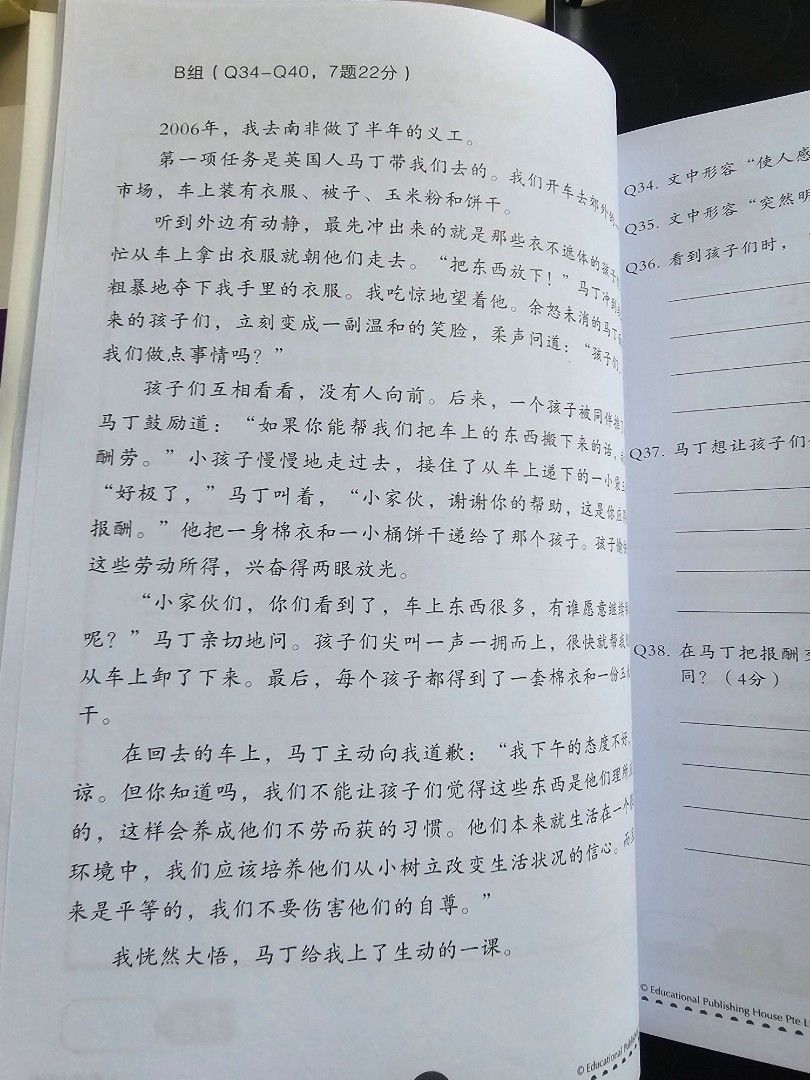 B组（Q34–Q40，7题22分）
2006年，我去南非做了半年的义工。
第一项任务是英国人马丁带我们去的。我们开车去郊外的
市场，车上装有衣服、被子、玉米粉和饼干。
听到外边有动静，最先冲出来的就是那些衣不遮体的孩子
忙从车上拿出衣服就朝他们走去。“把东西放下！”马丁冲到
粗暴地夺下我手里的衣服。我吃惊地望着他。余怒未消的马丁
来的孩子们，立刻变成一副温和的笑脸，柔声问道：“孩子们，
我们做点事情吗？”
孩子们互相看看，没有人向前。后来，一个孩子被同伴推
马丁鼓励道：“如果你能帮我们把车上的东西搬下来的话，
酬劳。”小孩子慢慢地走过去，接住了从车上递下的一小袋
“好极了，”马丁叫着，“小家伙，谢谢你的帮助，这是你应
报酬。”他把一身棉衣和一小桶饼干递给了那个孩子。孩子
这些劳动所得，兴奋得两眼放光。
“小家伙们，你们看到了，车上东西很多，有谁愿意继续
呢？”马丁亲切地问。孩子们尖叫一声一拥而上，很快就帮我
从车上卸了下来。最后，每个孩子都得到了一套棉衣和一份玉
干。
在回去的车上，马丁主动向我道歉：“我下午的态度不好，
谅。但你知道吗，我们不能让孩子们觉得这些东西是他们理所
的，这样会养成他们不劳而获的习惯。他们本来就生活在一个
环境中，我们应该培养他们从小树立改变生活状况的信心。而且
来是平等的，我们不要伤害他们的自尊。”
我恍然大悟，马丁给我上了生动的一课。
© Educational Publis
Q34. 文中形容“使人感
Q35. 文中形容“突然明
Q36. 看到孩子们时，
Q37. 马丁想让孩子们
Q38. 在马丁把报酬
同？（4分）
© Educational Publishing House Pte L